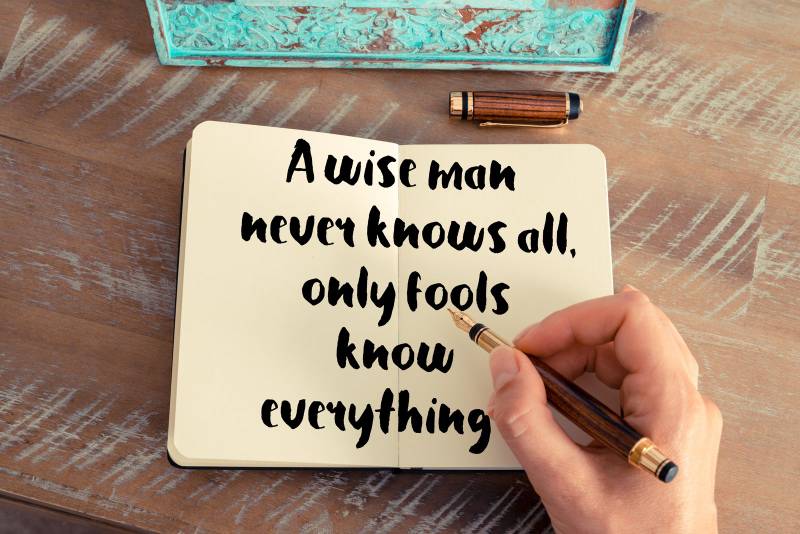 A wise man
never knows all,
only fools
know
everything